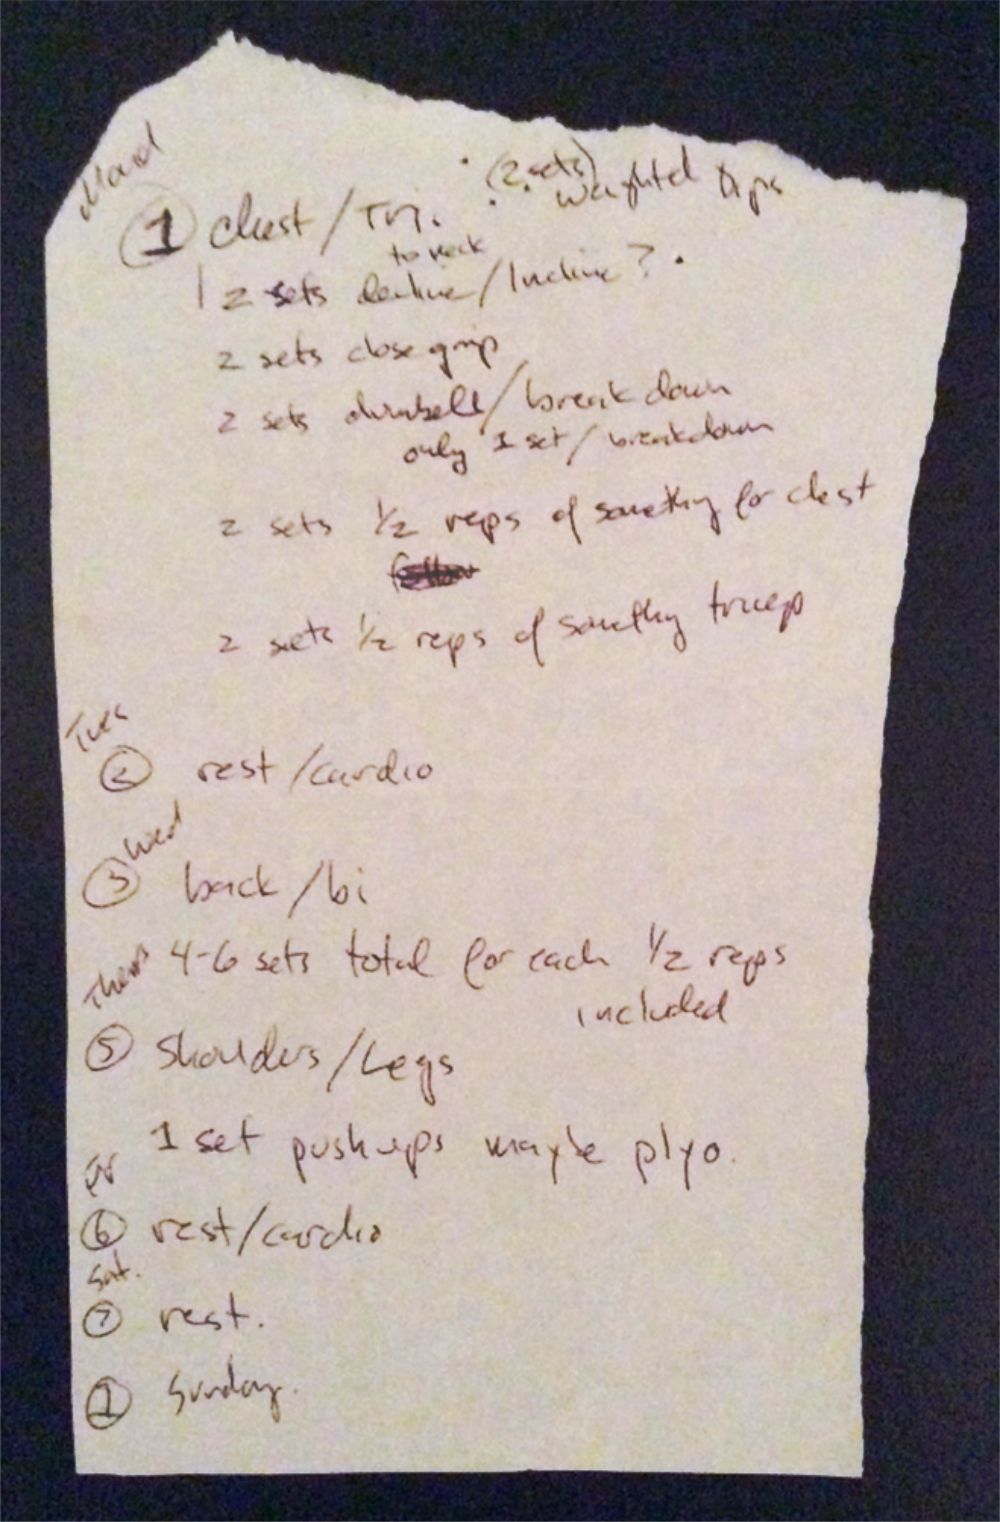 (2 sets) weighted Dips
Mond
1 Chest / Tri.
to neck
2 sets decline / Incline ?
2 sets close grip
2 sets dumbell / break down
only 1 set / breakdown
2 sets 1/2 reps of something for chest
2 sets 1/2 reps of something tricep
Tues
2 rest / cardio
Wed
3 back / bi
4-6 sets total for each 1/2 reps
included
Thurs
5 Shoulders / Legs
1 set pushups maybe plyo.
Fr
6 rest / cardio
Sat.
7 rest.
1 Sunday.